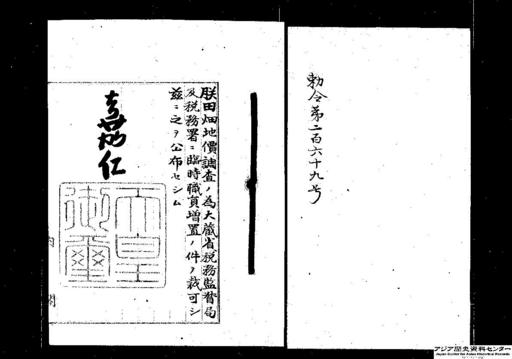 勅令第二百六十九号
朕田畑地價調査ノ為大蔵省税務監督局
及税務署ニ臨時職員増置ノ件ヲ裁可シ
茲ニ之ヲ公布セシム
嘉仁
天皇
御璽
内閣
アジア歴史資料センター
Japan Center for Asian Historical Records